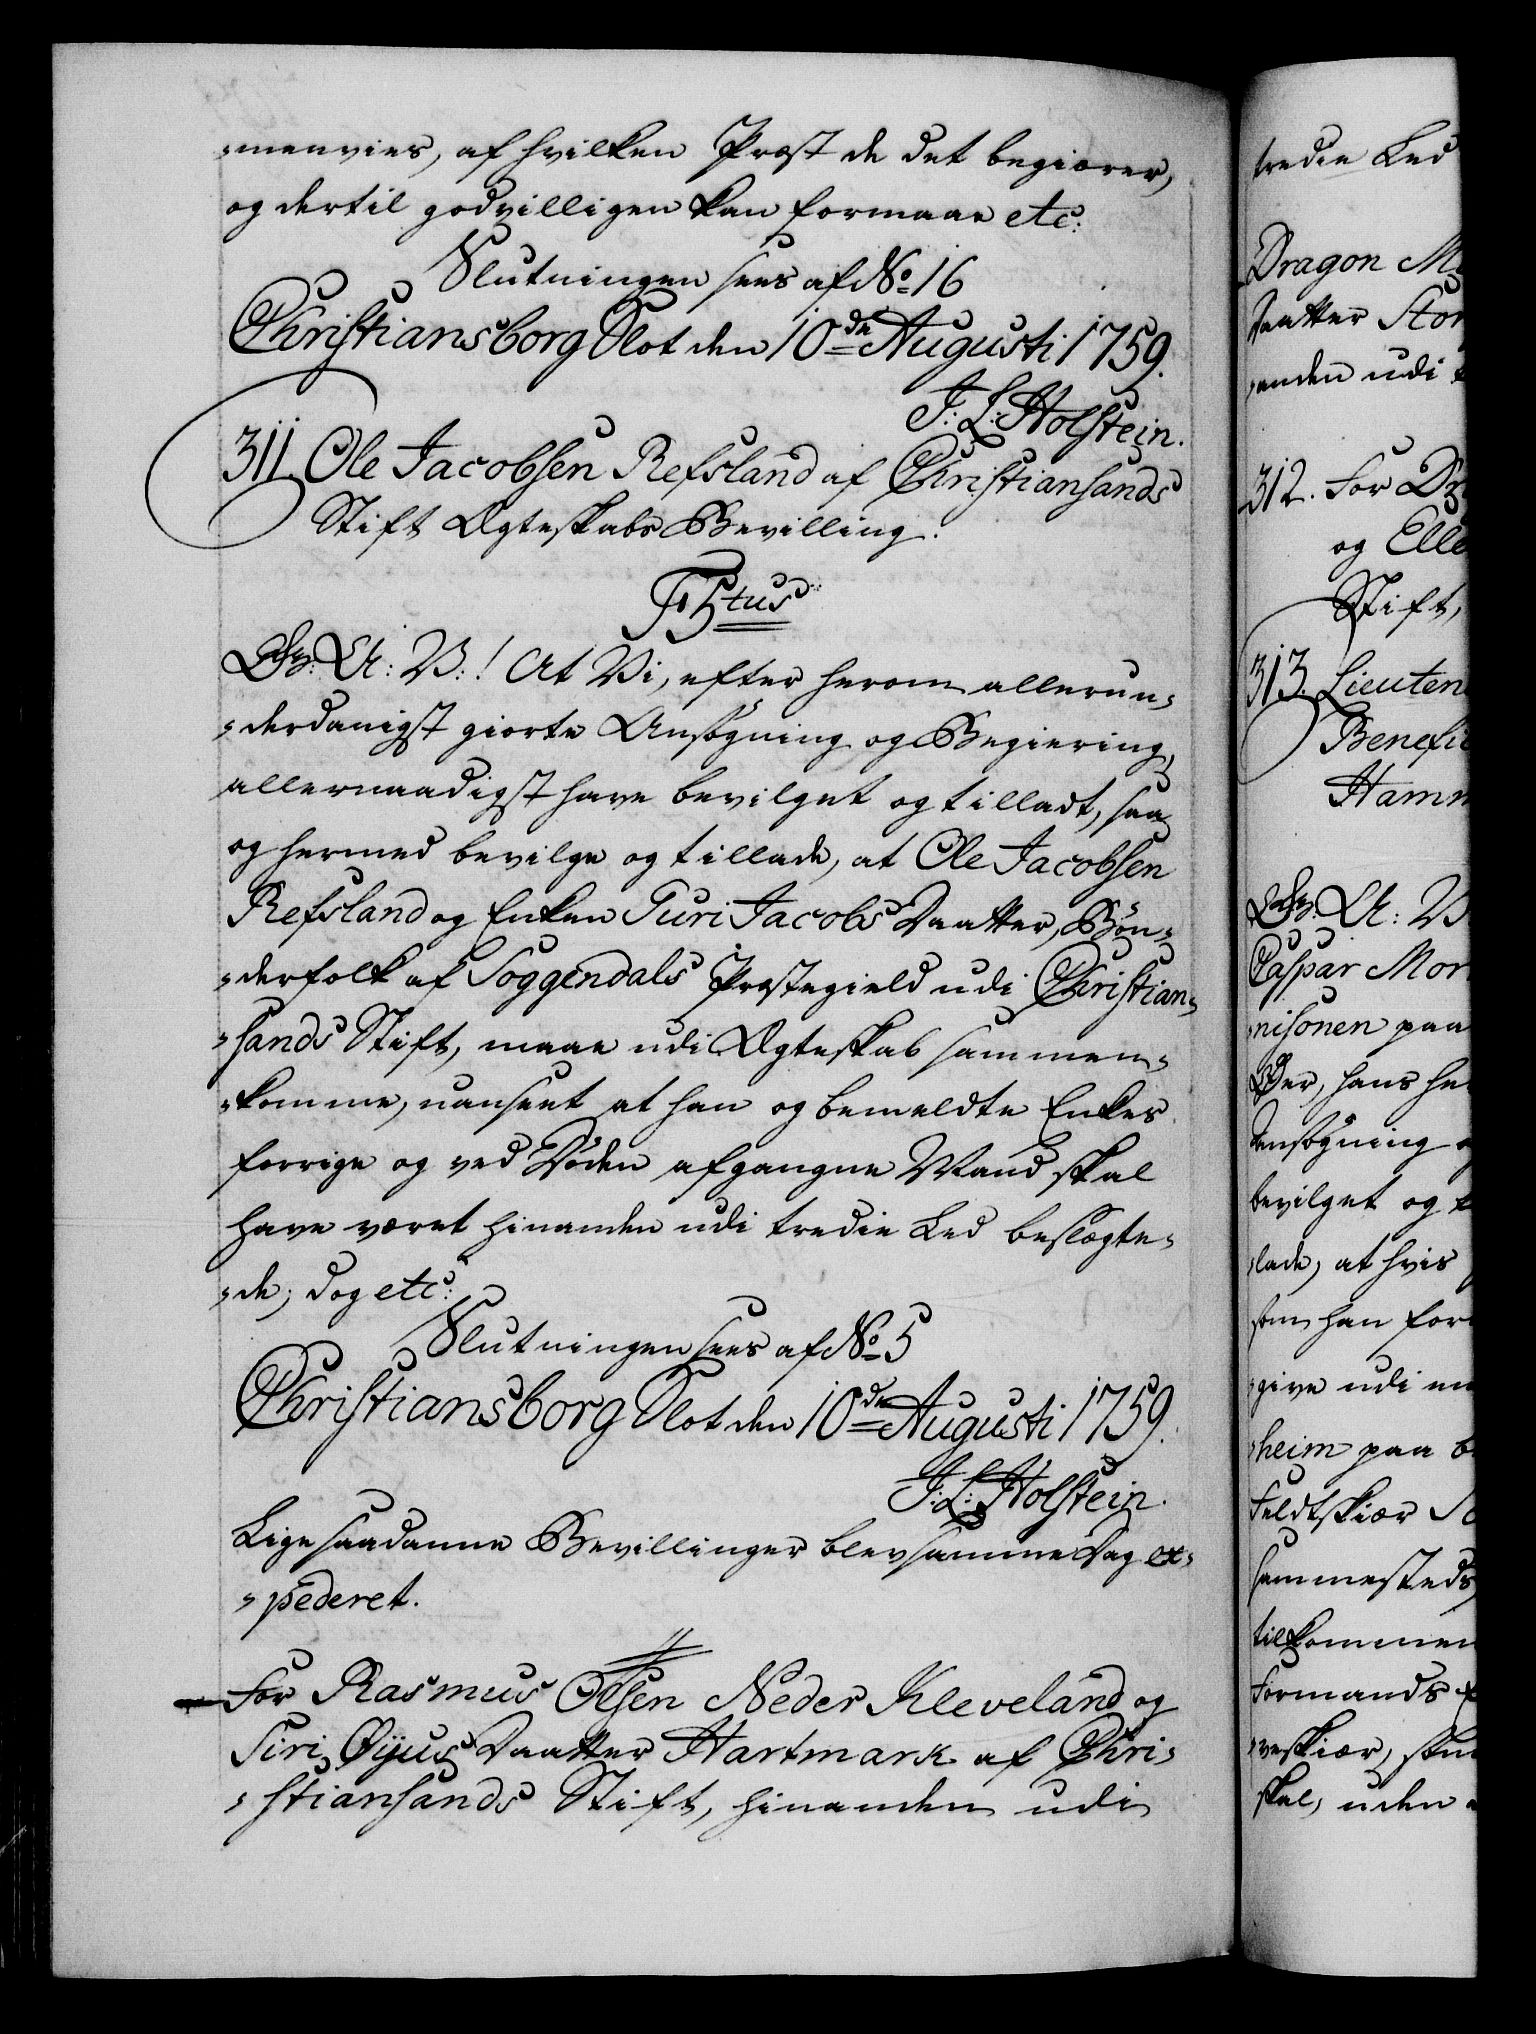 -menvies, af hvilken Præst de det begiærer,
og dertil godvilligen kan formaae etc:
Slutningen sees af No 16
Christiansborg Slot den 10de Augusti 1759.
J: L: Holstein.
311 Ole Jacobsen Refsland af Christiansands
Stift Ægteskabs Bevilling.
F5tus
Gr: A: V:! At Vi, efter herom allerun-
-derdanigst giorte Ansøgning og Begiering,
allernaadigst have bevilget og tilladt, saa
og hermed bevilge og tillade, at Ole Jacobsen
Refsland og Enken Turi Jacobs Daatter, Bøn-
-derfolk af Soggendals Præstegield udi Christian-
-sands Stift, maae udi Ægteskab sammen-
-komme, uanseet at han og bemeldte Enkes
forrige og ved Døden afgangne Mand skal
have været hinanden udi tredie Led beslægte-
-de; dog etc:
Slutningen sees af No 5
Christiansborg Slot den 10de Augusti 1759.
J: L: Holstein.
Lige saadanne Bevillinger blev samme Dag ex-
-pederet.
For Rasmus Olsen Neder Kleveland og
Siri Øijus Daatter Hartmark af Chri-
-stiansands Stift, hinanden udi
tredie Led
Dragon
Daatter
-anden udi
312. For
og
Stift,
313.
A: V
Caspar
-nisonen paa
hans
Ansøgning
bevilget og
-lade, at hvis
som han
-give udi
-heim paa
Feldtskiær
sammesteds
tilkommen
Formands
-veskiær,
skal, uden